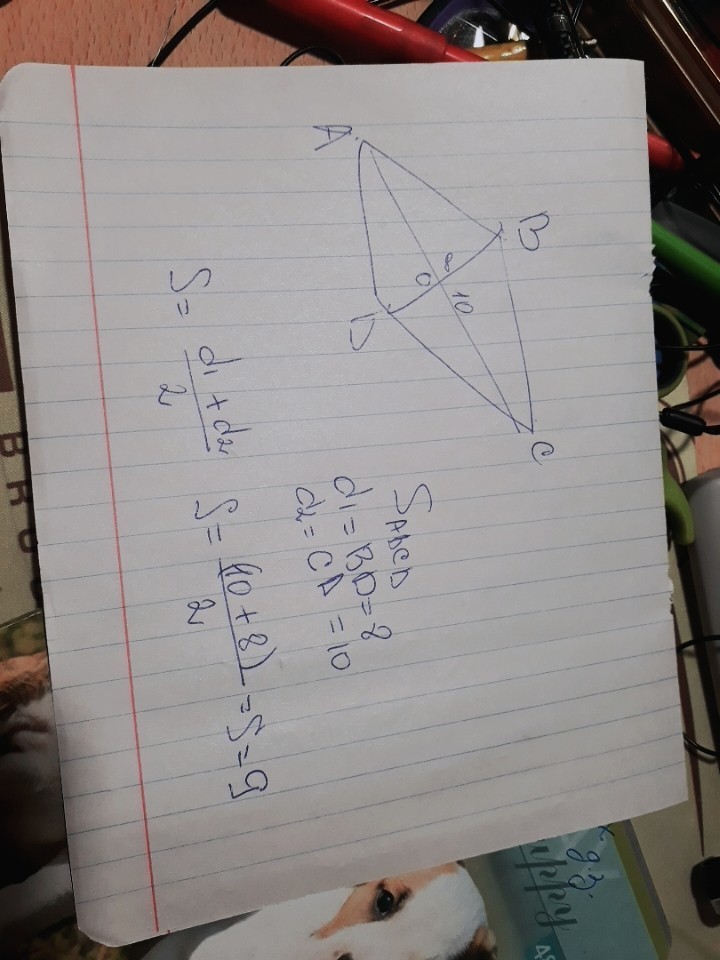 C
B
8
10
O
A
D
SABCD
d1 = BD = 8
d2 = CA = 10
S = d1 + d2 / 2   S = (10 + 8) / 2 = S = 9